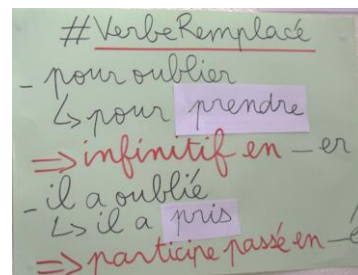 #VerbeRemplacé
- pour oublier
↳ pour prendre
⇒ infinitif en -er
- il a oublié
↳ il a pris
⇒ participe passé en -é